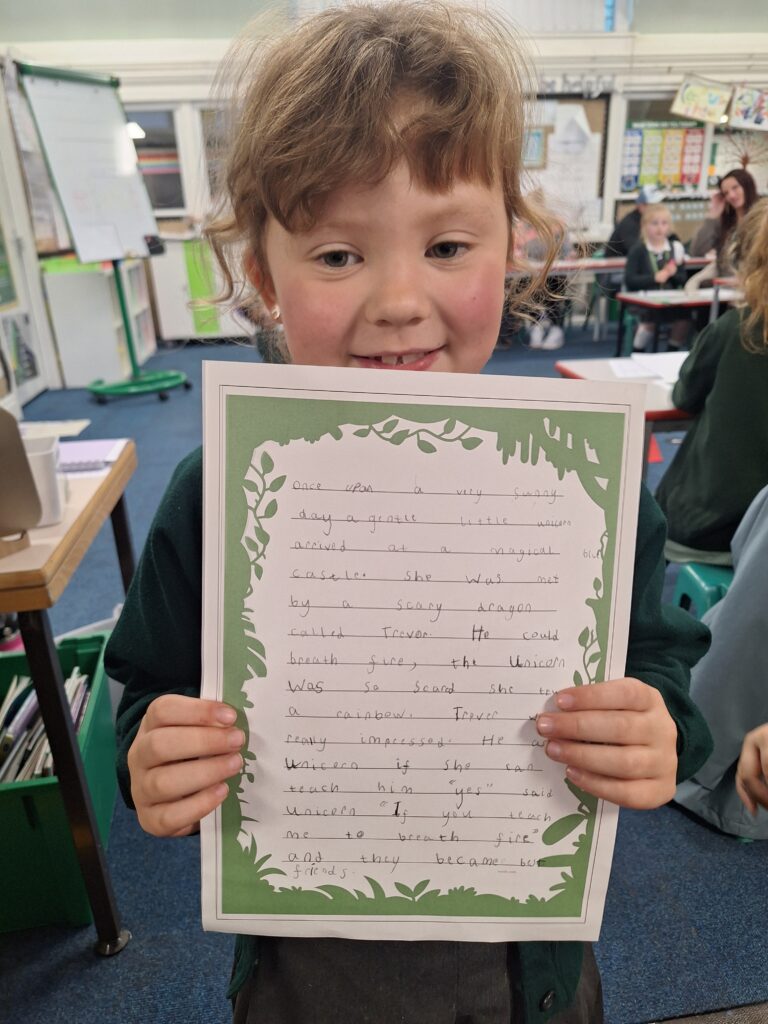 once upon a very sunny
day a gentle little unicorn
arrived at a magical
castle. she was met
by a scary dragon
called Trevor. He could
breath fire, the Unicorn
was so scard she
a rainbow. Trever
really impressed. He
Unicorn if she can
teach him "yes" said
Unicorn "If you teach
me to breath fire"
and they became
friends.